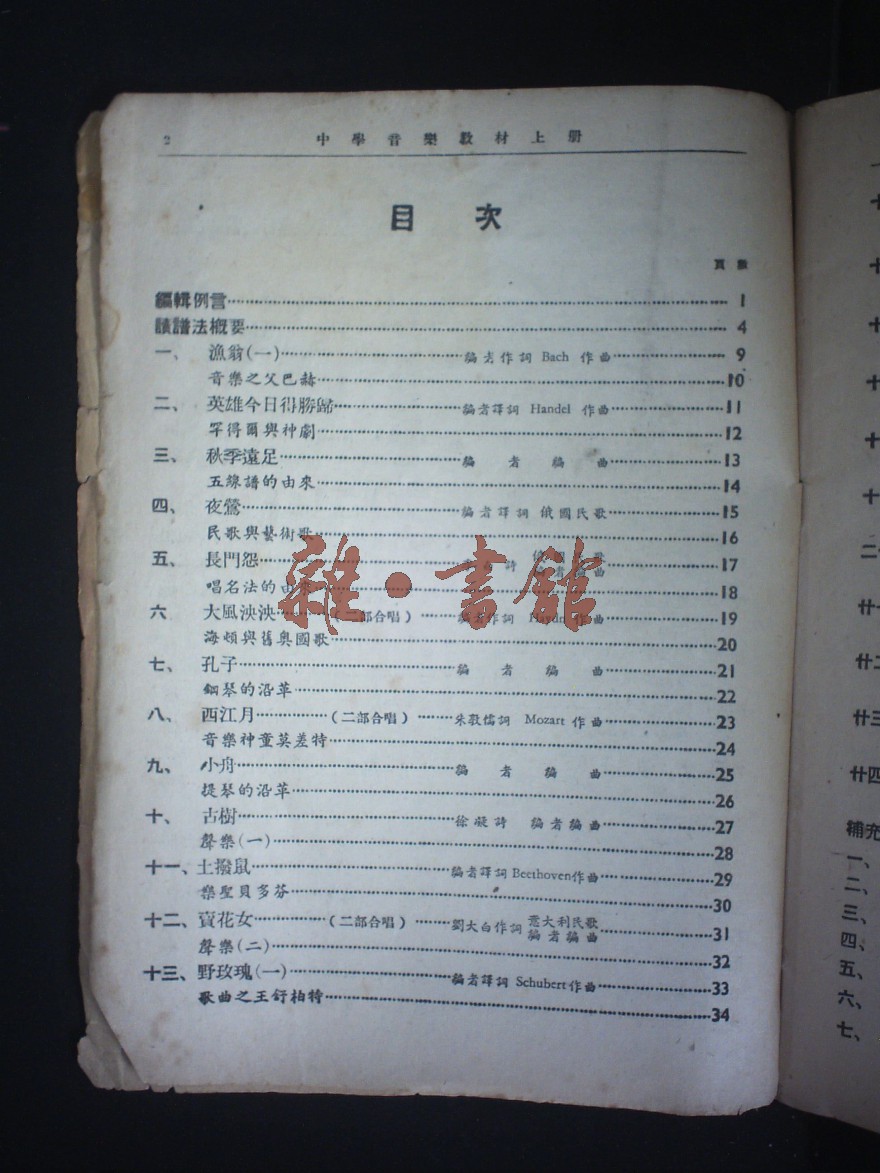 2 中學音樂教材上册
目 次
頁數
編輯例言 1
讀譜法概要 4
一、 漁翁(一) 編者作詞 Bach 作曲 9
音樂之父巴赫 10
二、 英雄今日得勝歸 編者譯詞 Handel 作曲 11
罕得爾與神劇 12
三、 秋季遠足 編者編曲 13
五線譜的由來 14
四、 夜鶯 編者譯詞 俄國民歌 15
民歌與藝術歌 16
五、 長門怨 詩 歌 編曲 17
唱名法的由來 18
六 大風泱泱 (二部合唱) 編者作詞 Haydn 作曲 19
海頓與舊奧國歌 20
七、 孔子 編者編曲 21
鋼琴的沿革 22
八、 西江月 (二部合唱) 朱敦儒詞 Mozart 作曲 23
音樂神童莫差特 24
九、 小舟 編者編曲 25
提琴的沿革 26
十、 古樹 徐凝詩 編者編曲 27
聲樂(一) 28
十一、 土撥鼠 編者譯詞 Beethoven作曲 29
樂聖貝多芬 30
十二、 賣花女 (二部合唱) 劉大白作詞 意大利民歌 編者編曲 31
聲樂(二) 32
十三、 野玫瑰(一) 編者譯詞 Schubert作曲 33
歌曲之王舒柏特 34
雜·書館
十
十
十
十
十
十
二
廿
廿二
廿三
廿四
補充
一、
二、
三、
四、
五、
六、
七、